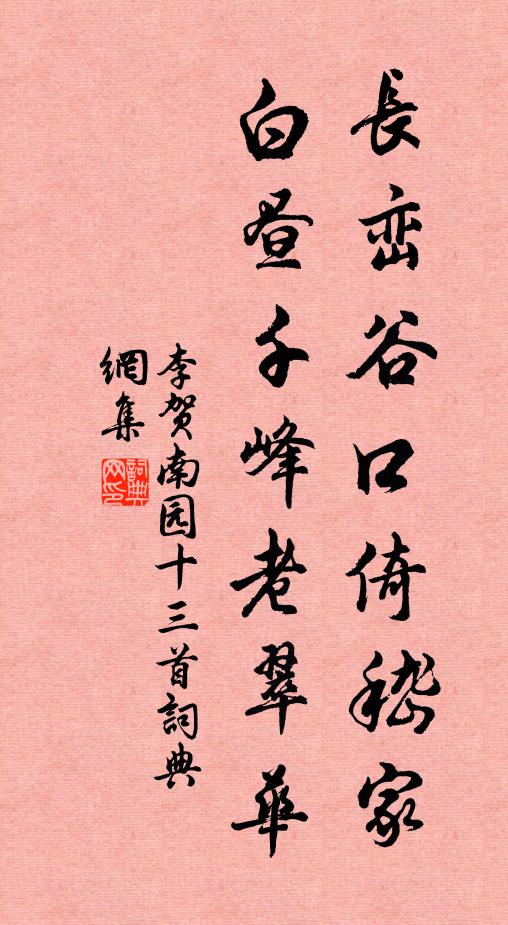 長峦谷口倚嵇家
白昼千峰老翠華
李贺南园十三首詞典
網集
詞典
网印